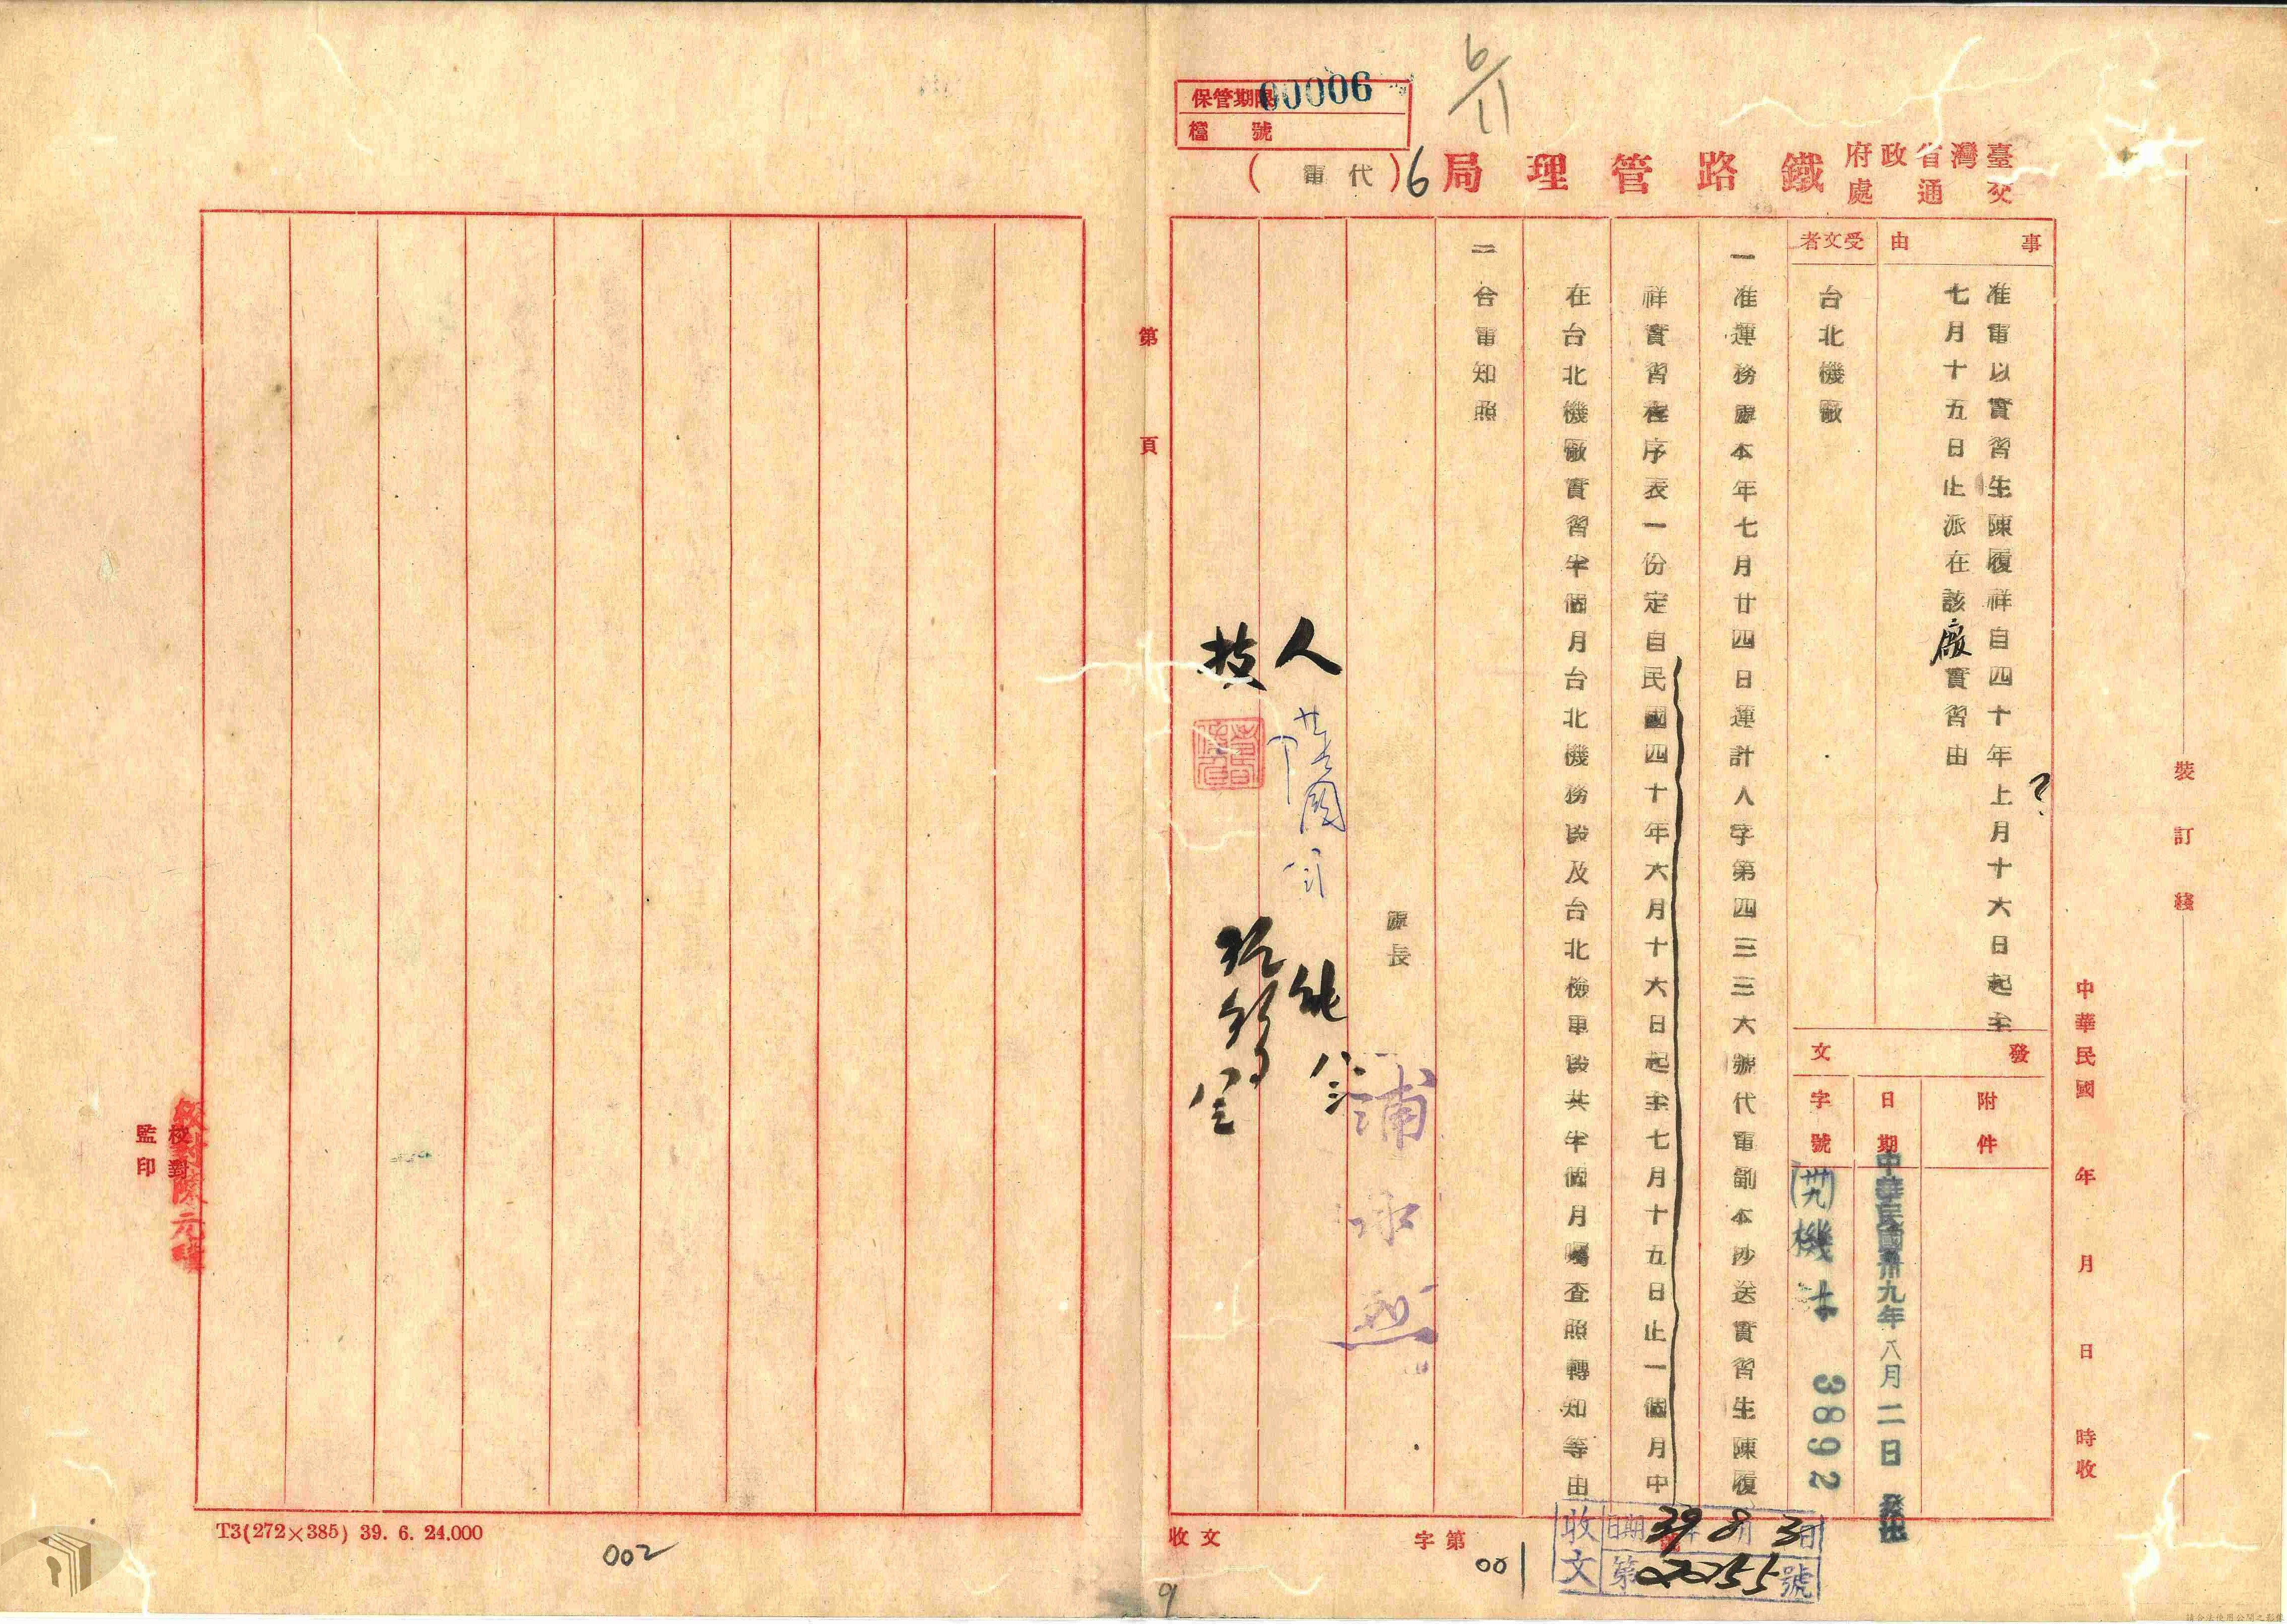 保管期限 00006
檔號
6/11
臺灣省政府交通處鐵路管理局 6 (代電)
事由
准電以實習生陳履祥自四十年上月十六日起至
?
七月十五日止派在該廠實習由
受文者
台北機廠
發文
附件
日期
中華民國卅九年八月二日發出
字號
(卅九)機
3892
一 准運務處本年七月廿四日運計人字第四三三六號代電副本沙送實習生陳履
祥實習程序表一份定自民國四十年六月十六日起至七月十五日止一個月中
在台北機廠實習半個月台北機務段及台北檢車段共半個月囑查照轉知等由
二 合電知照
處長
人
技
裝訂綫
中華民國 年 月 日 時收
收文 字第 號
收文 日期 39年8月3日
第02255號
001
第 頁
校對
監印
校對陳元
T3(272×385) 39. 6. 24.000
002
9